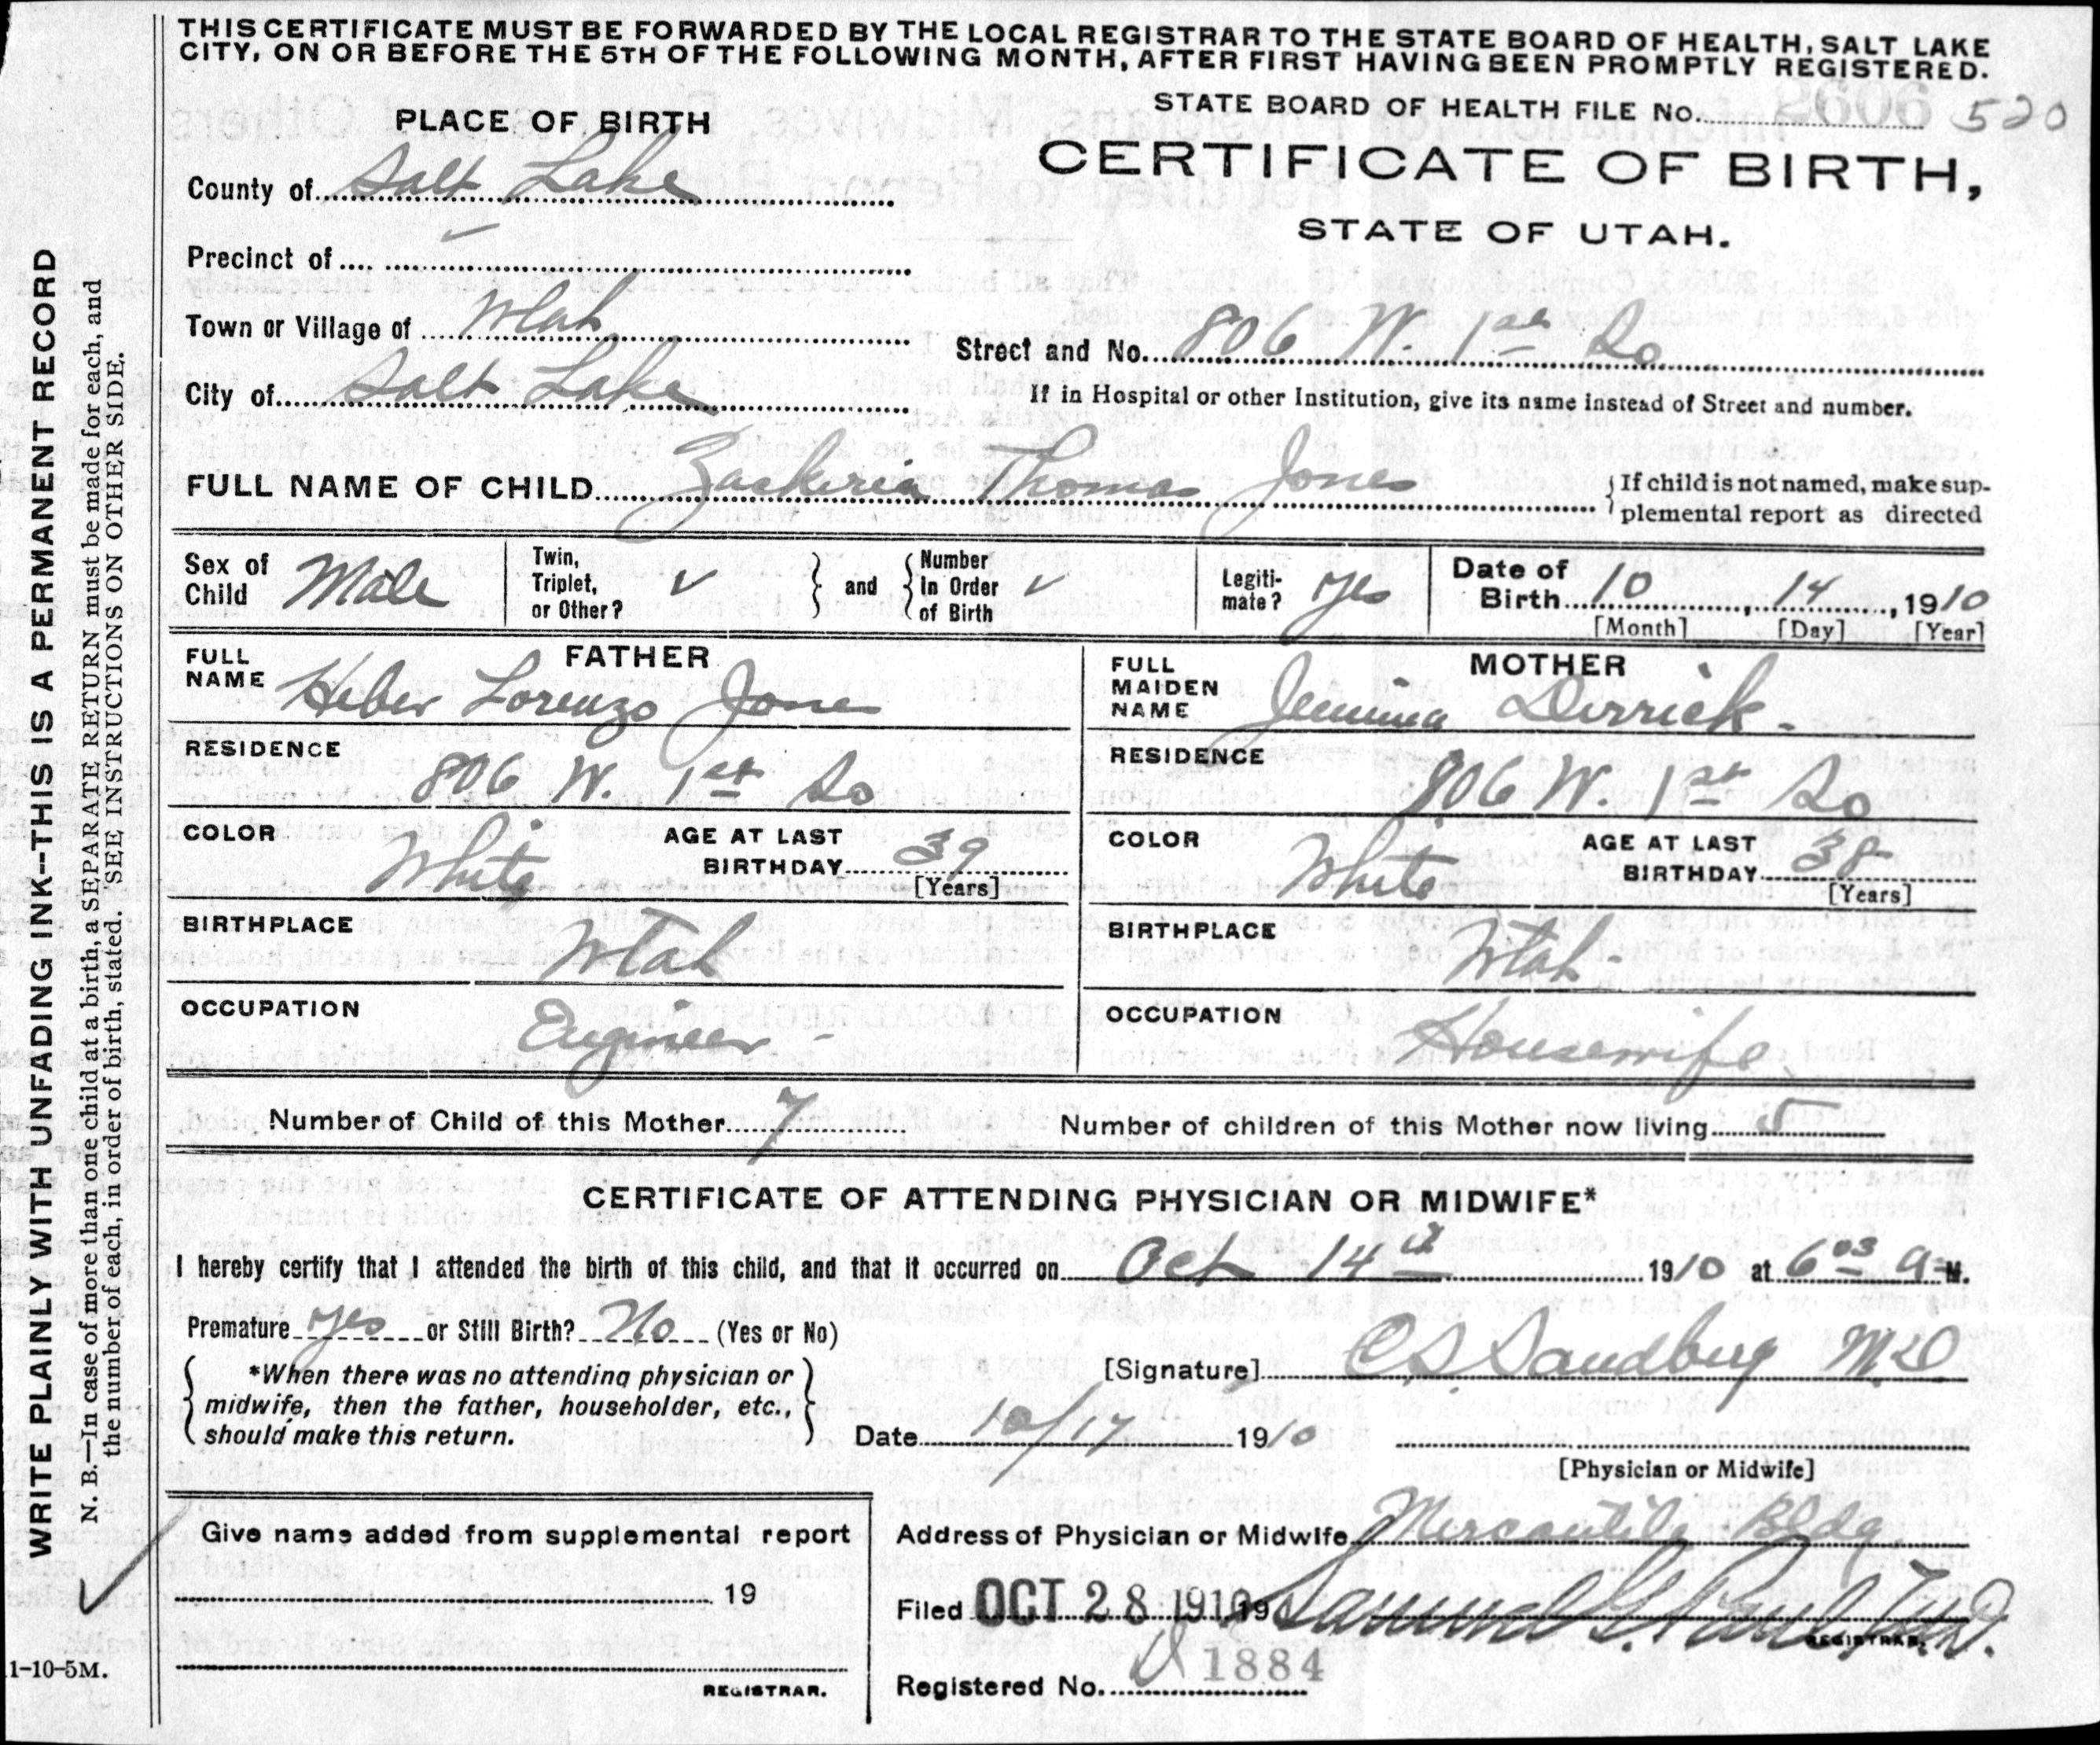 THIS CERTIFICATE MUST BE FORWARDED BY THE LOCAL REGISTRAR TO THE STATE BOARD OF HEALTH, SALT LAKE
CITY, ON OR BEFORE THE 5TH OF THE FOLLOWING MONTH, AFTER FIRST HAVING BEEN PROMPTLY REGISTERED.
STATE BOARD OF HEALTH FILE No. 2606 520
PLACE OF BIRTH
CERTIFICATE OF BIRTH,
STATE OF UTAH.
County of Salt Lake
Precinct of
Town or Village of Utah
Street and No. 806 W. 1st So
City of Salt Lake
If in Hospital or other Institution, give its name instead of Street and number.
FULL NAME OF CHILD Zackeria Thomas Jones
If child is not named, make sup-
plemental report as directed
Sex of Child Male
Twin, Triplet, or Other? ✓ and Number in Order of Birth ✓
Legiti-mate? yes
Date of Birth 10, 14, 1910
[Month] [Day] [Year]
FATHER
FULL NAME Heber Lorenzo Jones
RESIDENCE 806 W. 1st So
COLOR White AGE AT LAST BIRTHDAY 39 [Years]
BIRTHPLACE Utah
OCCUPATION Engineer -
MOTHER
FULL MAIDEN NAME Jemima Derrick.
RESIDENCE 806 W. 1st So
COLOR White AGE AT LAST BIRTHDAY 38 [Years]
BIRTHPLACE Utah.
OCCUPATION Housewife
Number of Child of this Mother 7
Number of children of this Mother now living 5
CERTIFICATE OF ATTENDING PHYSICIAN OR MIDWIFE*
I hereby certify that I attended the birth of this child, and that it occurred on Oct 14th 1910 at 6 03 a M.
Premature yes or Still Birth? No (Yes or No)
*When there was no attending physician or
midwife, then the father, householder, etc.,
should make this return.
[Signature] C.S. Sandberg M.D
Date 10/17 1910
[Physician or Midwife]
Give name added from supplemental report
19
REGISTRAR.
Address of Physician or Midwife Mercantile Bldg
Filed OCT 28 1910 19 Samuel G. Paul M.D.
REGISTRAR.
Registered No. 1884
WRITE PLAINLY WITH UNFADING INK--THIS IS A PERMANENT RECORD
N. B.—In case of more than one child at a birth, a SEPARATE RETURN must be made for each, and
the number of each, in order of birth, stated. SEE INSTRUCTIONS ON OTHER SIDE.
1-10-5M.